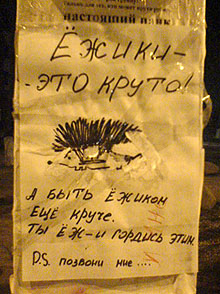 настоящий
ЁЖИКИ—
-ЭТО КРУТО!
А БЫТЬ ЁЖИКОМ
ЕЩЁ КРУЧЕ.
ТЫ ЁЖ-И ГОРДИСЬ ЭТИМ.
P.S. позвони мне ....